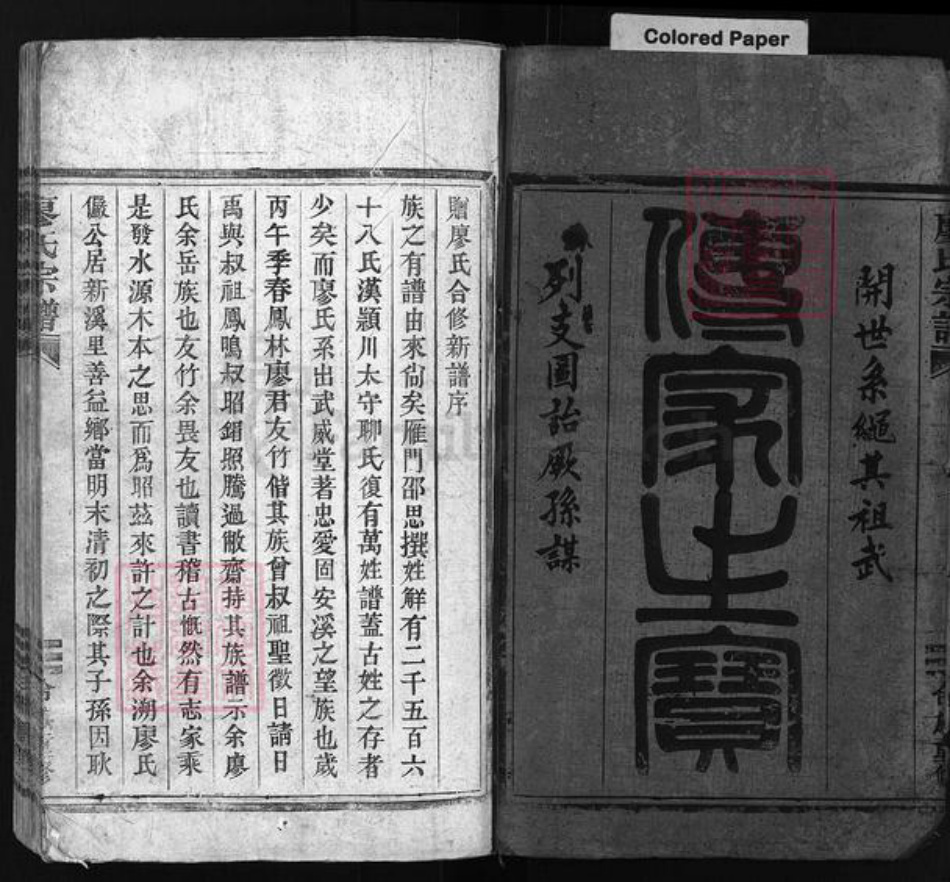 Colored Paper
廖氏宗譜
開世系繩其祖武
傳家之寶
列支圖詒厥孫謀
贈廖氏合修新譜序
族之有譜由來尙矣雁門邵思撰姓解有二千五百六
十八氏漢潁川太守聊氏復有萬姓譜蓋古姓之存者
少矣而廖氏系出武威堂著忠愛固安溪之望族也歲
丙午季春鳳林廖君友竹偕其族曾叔祖聖徵日請日
禹與叔祖鳳鳴叔昭鋿照騰過敝齋持其族譜示余廖
氏余岳族也友竹余畏友也讀書稽古慨然有志家乘
是發水源木本之思而爲昭茲來許之計也余溯廖氏
儼公居新溪里善益鄉當明末清初之際其子孫因耿
廖氏宗譜